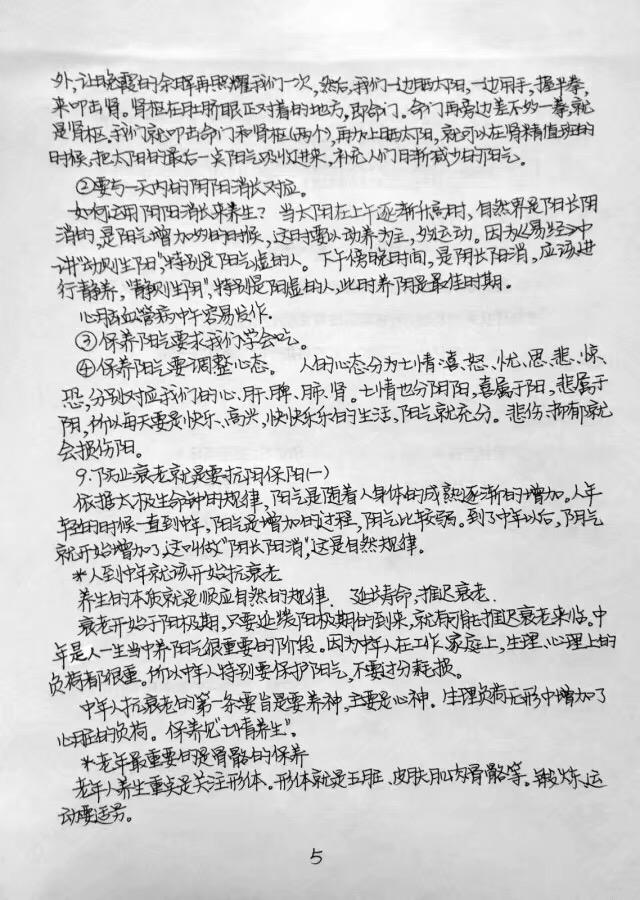 外,让晚霞的余晖再照耀我们一次,然后,我们一边晒太阳,一边用手,握半拳,
来叩击肾。肾枢在肚脐眼正对着的地方,即命门。命门再旁边差不多一拳,就
是肾枢。我们就叩击命门和肾枢(两个),再加上晒太阳,就可以在肾精值班的
时候,把太阳的最后一点阳气吸收进来,补充人们日渐减少的阳气。
②要与一天内的阴阳消长对应。
如何运用阴阳消长来养生?当太阳在上午逐渐升高时,自然界是阳长阴
消的,是阳气增加多的时候,这时要以动养为主,多运动。因为《易经》中
讲"动则生阳",特别是阳气虚的人。下午傍晚时间,是阴长阳消,应该进
行静养,"静则生阴",特别是阳虚的人,此时养阴是最佳时期。
心脑血管病中午容易发作.
③保养阳气要求我们学会吃。
④保养阳气要调整心态。 人的心态分为七情:喜、怒、忧、思、悲、惊、
恐,分别对应我们的心、肝、脾、肺、肾。七情也分阴阳,喜属于阳,悲属于
阴,所以每天要是快乐、高兴,快快乐乐的生活,阳气就充分。悲伤、抑郁就
会损伤阳。
9.防止衰老就是要抗阳保阳(一)
依据太极生命钟的规律,阳气是随着人身体的成熟逐渐的增加。人年
轻的时候一直到中年,阳气是增加的过程,阴气比较弱。到了中年以后,阴气
就开始增加了,这叫做"阴长阳消",这是自然规律。
*人到中年就该开始抗衰老
养生的本质就是顺应自然的规律. 延长寿命,推迟衰老.
衰老开始于阳极期,只要延缓阳极期的到来,就有可能推迟衰老来临。中
年是人一生当中养阳气很重要的阶段。因为中年人在工作、家庭上,生理、心理上的
负荷都很重。所以中年人特别要保护阳气,不要过分耗损。
中年人抗衰老的第一条要旨是要养神,主要是心神。生理负荷无形中增加了
心脏的负荷。保养见"七情养生"。
*老年最重要的是骨骼的保养
老年人养生重点是关注形体。形体就是五脏、皮肤、肌肉、骨骼等。锻炼、运
动要适另。
5